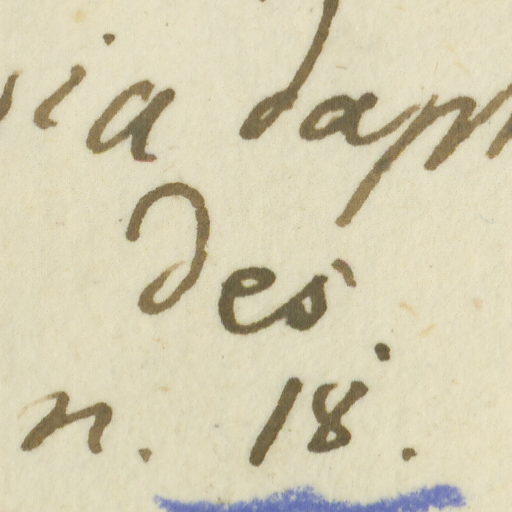 ia daph
des.
n. 18.